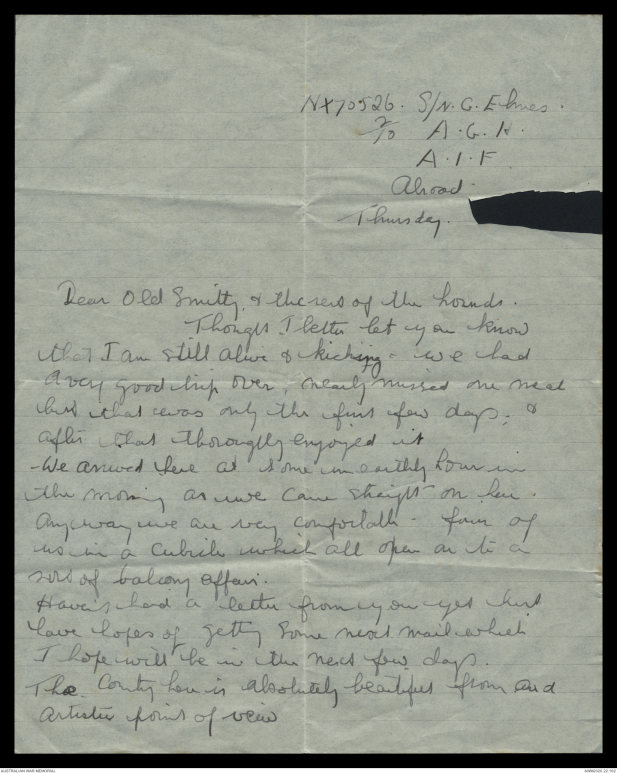 NX70526. S/N. G. Elmes.
2/10 A.G.H.
A.I.F.
Abroad.
Thursday.
Dear Old Smitty & the rest of the hounds.
Thought I better let you know
that I am still alive & kicking - we had
a very good trip over, nearly missed one meal
but that was only the first few days, &
after that thoroughly enjoyed it
- We arrived here at some unearthly hour in
the morning as we came straight on here.
Anyway we are very comfortable - four of
us in a cubicle which all open on to a
sort of balcony affair.
Haven't had a letter from you yet but
have hopes of getting some next mail which
I hope will be in the next few days.
The County here is absolutely beautiful from and
artistic point of veiw
AUSTRALIAN WAR MEMORIAL